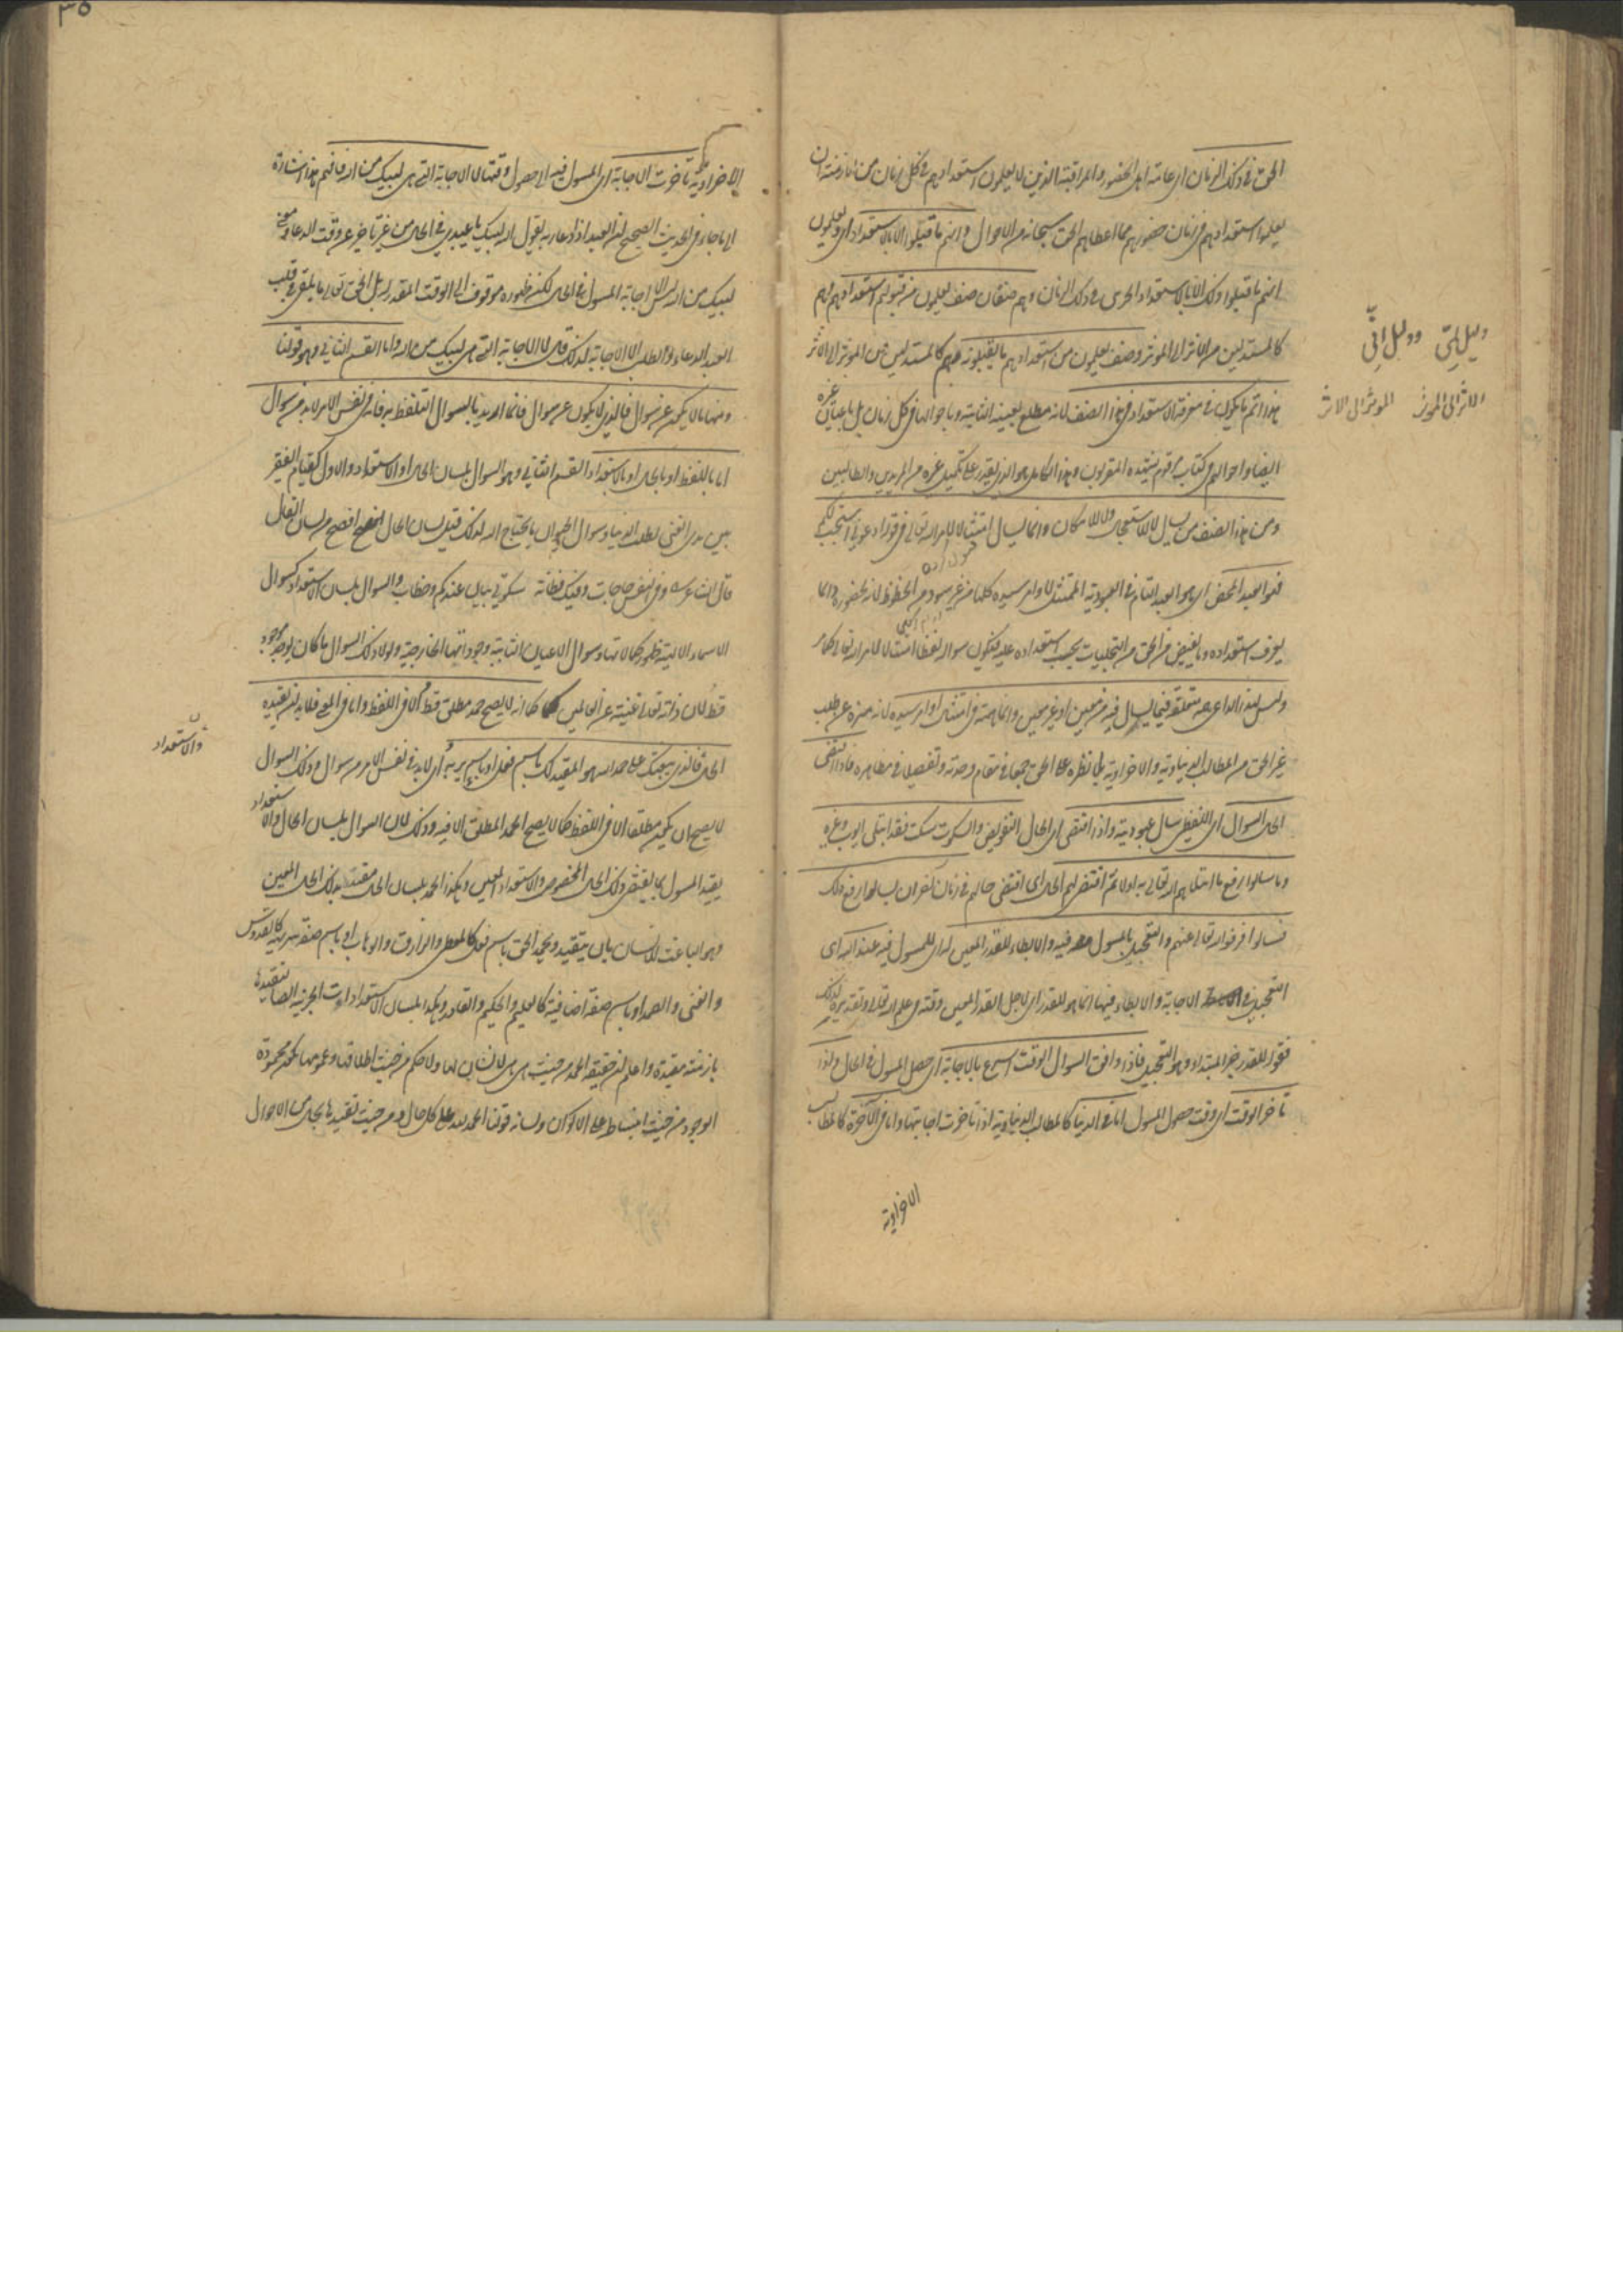 الحق في ذلك الزمان اي عامة اهل الحضور والمراقبة الذين لا يعلمون استعدادهم في كل زمان من الازمنة ان
يعلموا استعدادهم في زمان حضورهم بما اعطاهم الحق سبحانه من الاحوال وانهم ما قبلوا الا بالاستعداد اي ويعلمون
انهم ما قبلوا ذلك الا بالاستعداد الجزئي في ذلك الزمان وهم صنفان صنف يعلمون من قبولهم استعدادهم وهم
كالمستدلين من الاثر الى المؤثر وصنف يعلمون من استعدادهم ما يقبلونه وهم كالمستدلين من المؤثر الى الاثر
هذا اتم ما يكون في معرفة الاستعداد في هذا الصنف لانه مطلع بعينه الثابتة وباحوالها في كل زمان بل باعيان غيره
ايضا واحوالهم في كتاب مرقوم يشهده المقربون وهذا الكامل هو الذي يقدر على تكميل غيره من المريدين والطالبين
ومن هذا الصنف من يسأل لا للاستعجال ولا للامكان وانما يسأل امتثالا لامر الله تعالى في قوله ادعوني استجب لكم
فهو العبد المحض اي هو العبد التام في العبودية الممتثل لاوامر سيده كلها من غير شوب من الحظوظ لانه لحضوره دائما
يعرف استعداده وما يفيض من الحق من التجليات بحسب استعداده عليه فيكون سواله لفظا امتثالا لامر الله تعالى كما مر
وليس لهذا الداعي همة متعلقة فيما يسأل فيه من معين او غير معين وانما همته في امتثال اوامر سيده لانه منزه عن طلب
غير الحق من المطالب الدنياوية والاخراوية بل نظره على الحق جمعا في مقام وحدته وتفصيلا في مظاهره فاذا اقتضى
الحال السوال اي اللفظي سأل عبودية واذا اقتضى اي الحال التفويض والسكوت سكت فقد ابتلي ايوب وغيره
وما سألوا رفع ما ابتلاهم الله تعالى به اولا ثم اقتضى لهم الحال اي اقتضى حالهم في زمان آخر ان يسألوا رفع ذلك
فسألوا فرفعه الله تعالى عنهم والتعجيل بالمسول فيه والابطاء للقدر المعين له اي للمسول فيه عند الله اي
التعجيل في الاجابة والابطاء فيها انما هو للقدر اي لاجل القدر المعين وقته في علم الله تعالى وتقديره لذلك
فقوله للقدر خبر المبتدا وهو التعجيل فاذا وافق السوال الوقت اسرع بالاجابة اي حصل المسول في الحال واذا
تأخر الوقت اي وقت حصول المسول اما في الدنيا كالمطالب الدنياوية اذا تأخرت اجابتها واما في الآخرة كالمطالب
الاخراوية
دليل لمّي ودليل انّي
الاثر الى المؤثر المؤثر الى الاثر
٣٥
الاخراوية تأخرت الاجابة اي المسول فيه الى حصول وقتها لا الاجابة التي هي لبيك من الله فافهم هذا اشارة
الى ما جاء في الحديث الصحيح ان العبد اذا دعا ربه يقول الله لبيك يا عبدي في الحال من غير تأخير عن وقت الدعاء
لبيك من الله ليس الا اجابة المسول في الحال لكن ظهوره موقوف الى الوقت المقدر له بل الحق تعالى ما يلقي في قلب
العبد الدعاء والطلب الا للاجابة لذلك قال لا الاجابة التي هي لبيك من الله واما القسم الثاني وهو قولنا
ومنها ما لا يكون عن سوال فالذي لا يكون عن سوال فانما اريد بالسوال التلفظ به فانه في نفس الامر لا بد من سوال
اما باللفظ او بالحال او بالاستعداد القسم الثاني وهو السوال بلسان الحال او الاستعداد والاول كقيام الفقير
بين يدي الغني لطلب الدنيا وسوال الحيوان ما يحتاج اليه لذلك قيل لسان الحال افصح من لسان القال
قال الشاعر شعر وفي النفس حاجات وفيك فطانة سكوتي بيان عندكم وخطاب والسوال بلسان الاستعداد كسوال
الاسماء الالهية ظهور كمالاتها وسوال الاعيان الثابتة وجوداتها الخارجية ولولا ذلك السوال ما كان يوجد موجود
قط لان ذاته تعالى غنية عن العالمين كما انه لا يصح حمد مطلق قط الا في اللفظ واما في المعنى فلا بد ان يقيده
الحال فالذي يبعثك على حمد الله هو المقيد لك باسم فعل او باسم تنزيه اي لا بد في نفس الامر من سوال وذلك السوال
لا يصح ان يكون مطلقا الا في اللفظ كما لا يصح الحمد المطلق الا فيه وذلك لان السوال بلسان الحال والاستعداد
يقيد المسول بما يقتضي ذلك الحال المخصوص والاستعداد المعين وهكذا الحمد بلسان الحال مقيد بذلك الحال المعين
وهو الباعث للانسان بان يتقيد ويحمد الحق باسم فعل كالمعطي والرزاق والوهاب او باسم صفة تنزيهية كالقدوس
والغني والصمد او باسم صفة اضافية كالعليم والحكيم والقادر وهكذا بلسان الاستعدادات الجزئية ايضا لتقيدها
بازمنة مقيدة واعلم ان حقيقة الحمد من حيث هي هي لا لسان لها ولا حكم من حيث اطلاقها وعمومها لحمد محمودة
الوجود من حيث انبساطه على الاكوان ولسانه قولنا الحمد لله على كل حال ومن حيث تقيدها بحال من الاحوال
والاستعداد